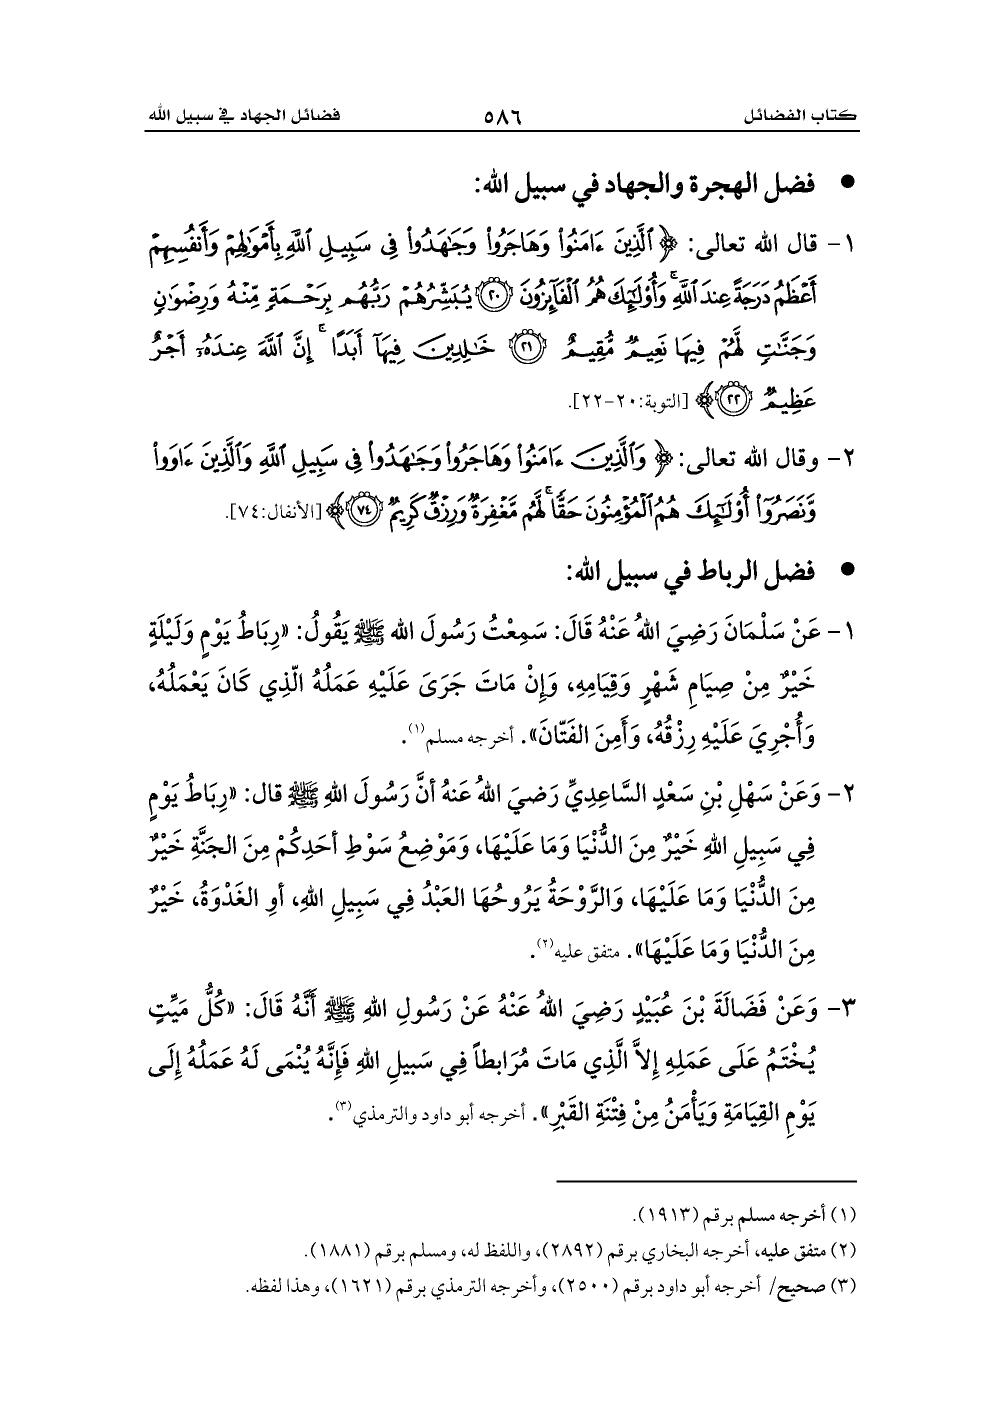 كتاب الفضائل ٥٨٦ فضائل الجهاد في سبيل الله
● فضل الهجرة والجهاد في سبيل الله:
١- قال الله تعالى: ﴿ٱلَّذِينَ ءَامَنُوا۟ وَهَاجَرُوا۟ وَجَـٰهَدُوا۟ فِى سَبِيلِ ٱللَّهِ بِأَمْوَٰلِهِمْ وَأَنفُسِهِمْ
أَعْظَمُ دَرَجَةً عِندَ ٱللَّهِ ۚ وَأُو۟لَـٰٓئِكَ هُمُ ٱلْفَآئِزُونَ ۝٢٠ يُبَشِّرُهُمْ رَبُّهُم بِرَحْمَةٍ مِّنْهُ وَرِضْوَٰنٍ
وَجَنَّـٰتٍ لَّهُمْ فِيهَا نَعِيمٌ مُّقِيمٌ ۝٢١ خَـٰلِدِينَ فِيهَآ أَبَدًا ۚ إِنَّ ٱللَّهَ عِندَهُۥٓ أَجْرٌ
عَظِيمٌ ۝٢٢﴾ [التوبة:٢٠-٢٢].
٢- وقال الله تعالى: ﴿وَٱلَّذِينَ ءَامَنُوا۟ وَهَاجَرُوا۟ وَجَـٰهَدُوا۟ فِى سَبِيلِ ٱللَّهِ وَٱلَّذِينَ ءَاوَوا۟
وَّنَصَرُوٓا۟ أُو۟لَـٰٓئِكَ هُمُ ٱلْمُؤْمِنُونَ حَقًّا ۚ لَّهُم مَّغْفِرَةٌ وَرِزْقٌ كَرِيمٌ ۝٧٤﴾ [الأنفال:٧٤].
● فضل الرباط في سبيل الله:
١- عَنْ سَلْمَانَ رَضِيَ اللهُ عَنْهُ قَالَ: سَمِعْتُ رَسُولَ الله ﷺ يَقُولُ: «رِبَاطُ يَوْمٍ وَلَيْلَةٍ
خَيْرٌ مِنْ صِيَامِ شَهْرٍ وَقِيَامِهِ، وَإِنْ مَاتَ جَرَىَ عَلَيْهِ عَمَلُهُ الّذِي كَانَ يَعْمَلُهُ،
وَأُجْرِيَ عَلَيْهِ رِزْقُهُ، وَأَمِنَ الفَتّانَ». أخرجه مسلم(١).
٢- وَعَنْ سَهْلِ بْنِ سَعْدٍ السَّاعِدِيِّ رَضيَ اللهُ عَنهُ أنَّ رَسُولَ اللهِ ﷺ قال: «رِبَاطُ يَوْمٍ
فِي سَبِيلِ اللهِ خَيْرٌ مِنَ الدُّنْيَا وَمَا عَلَيْهَا، وَمَوْضِعُ سَوْطِ أحَدِكُمْ مِنَ الجَنَّةِ خَيْرٌ
مِنَ الدُّنْيَا وَمَا عَلَيْهَا، وَالرَّوْحَةُ يَرُوحُهَا العَبْدُ فِي سَبِيلِ اللهِ، أوِ الغَدْوَةُ، خَيْرٌ
مِنَ الدُّنْيَا وَمَا عَلَيْهَا». متفق عليه(٢).
٣- وَعَنْ فَضَالَةَ بْنَ عُبَيْدٍ رَضِيَ اللهُ عَنْهُ عَنْ رَسُولِ اللهِ ﷺ أَنَّهُ قَالَ: «كُلُّ مَيِّتٍ
يُخْتَمُ عَلَى عَمَلِهِ إِلاَّ الَّذِي مَاتَ مُرَابطاً فِي سَبيلِ اللهِ فَإِنَّهُ يُنْمَى لَهُ عَمَلُهُ إِلَى
يَوْمِ القِيَامَةِ وَيَأْمَنُ مِنْ فِتْنَةِ القَبْرِ». أخرجه أبو داود والترمذي(٣).
(١) أخرجه مسلم برقم (١٩١٣).
(٢) متفق عليه، أخرجه البخاري برقم (٢٨٩٢)، واللفظ له، ومسلم برقم (١٨٨١).
(٣) صحيح/ أخرجه أبو داود برقم (٢٥٠٠)، وأخرجه الترمذي برقم (١٦٢١)، وهذا لفظه.